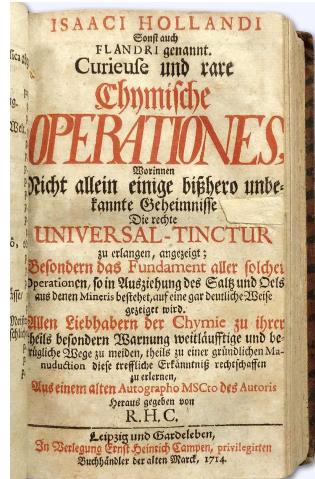 ISAACI HOLLANDI
Sonst auch
FLANDRI genannt.
Curieuse und rare
Chymische
OPERATIONES,
Worinnen
Nicht allein einige bißhero unbe-
kannte Geheimnisse
Die rechte
UNIVERSAL-TINCTUR
zu erlangen, angezeigt;
Besondern das Fundament aller solcher
Operationen, so in Ausziehung des Saltz und Oels
aus denen Mineris bestehet, auf eine gar deutliche Weise
gezeiget wird.
Allen Liebhabern der Chymie zu ihrer
theils besondern Warnung weitläufftige und be-
trügliche Wege zu meiden, theils zu einer gründlichen Ma-
nuduction diese treffliche Erkänntniß rechtschaffen
zu erlernen,
Aus einem alten Autographo MSCto des Autoris
Heraus gegeben von
R. H. C.
Leipzig und Gardeleben,
In Verlegung Ernst Heinrich Campen, privilegirten
Buchhändler der alten Marck, 1714.